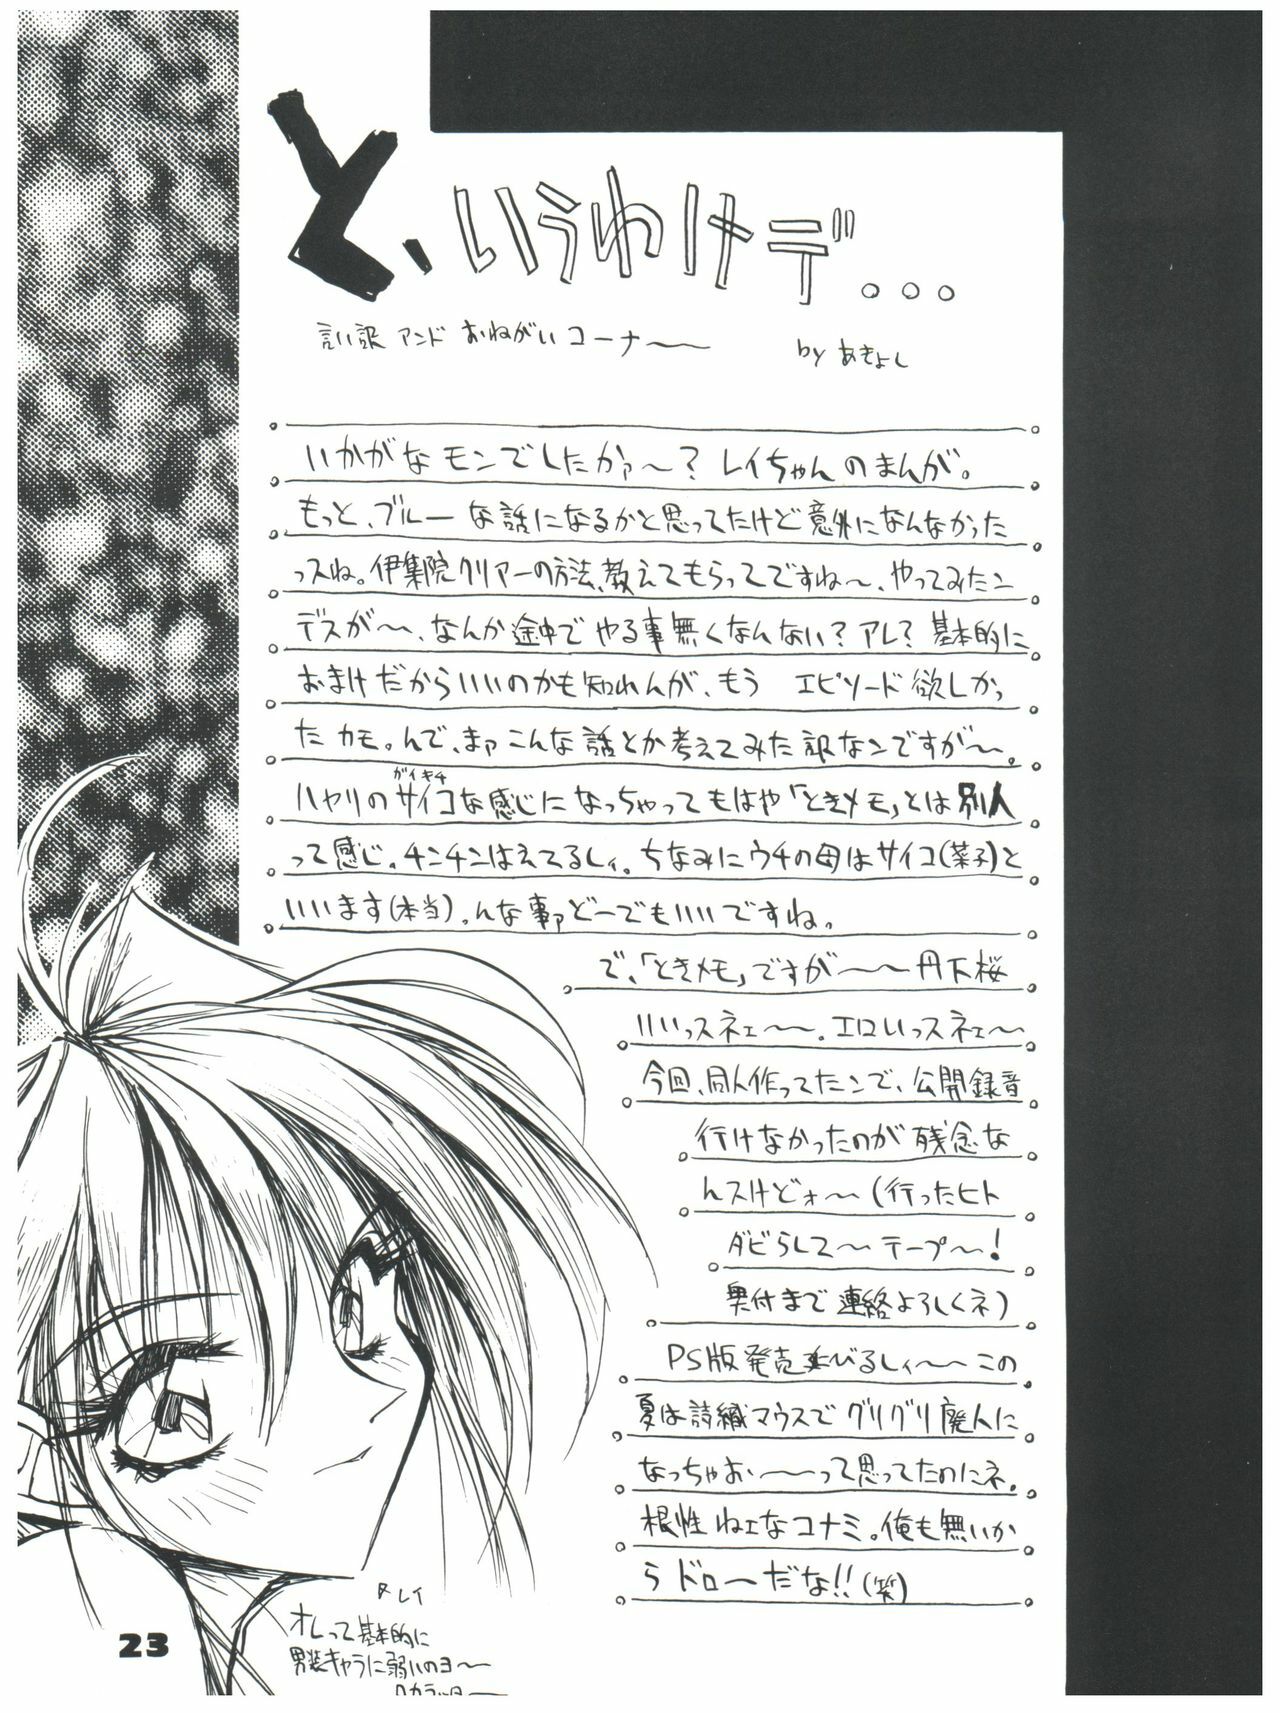 と、いうわけデ...
言い訳 アンド おねがい コーナー〜〜 by あきよし
いかがなモンでしたかァ〜?レイちゃんのまんが。
もっと、ブルーな話になるかと思ってたけど意外になんなかった
っスね。伊集院クリアーの方法、教えてもらってですね〜、やってみたン
デスが〜、なんか途中でやる事無くなんない?アレ?基本的に
おまけだからいいのかも知れんが、もう エピソード欲しかっ
たカモ。んで、まァこんな話とか考えてみた訳なンですが〜。
ガイキチ
ハヤリのサイコな感じになっちゃってもはや「ときメモ」とは別人
って感じ。チンチンはえてるしィ。ちなみにウチの母はサイコ(菜子)と
いいます(本当)。んな事ァどーでもいいですね。
で、「ときメモ」ですが〜〜丹下桜
いいっスネェ〜〜。エロいっスネェ〜
今回、同人作ってたンで、公開録音
行けなかったのが残念な
んスけどォ〜(行ったヒト
ダビらして〜テープ〜!
奥付まで連絡よろしくネ)
PS版発売延びるしィ〜〜この
夏は詩織マウスでグリグリ廃人に
なっちゃおぃ〜〜って思ってたのにネ。
根性ねェなコナミ。俺も無いか
らドローだな!!(笑)
レイ
オレって基本的に
男装キャラに弱いのヨ〜
23